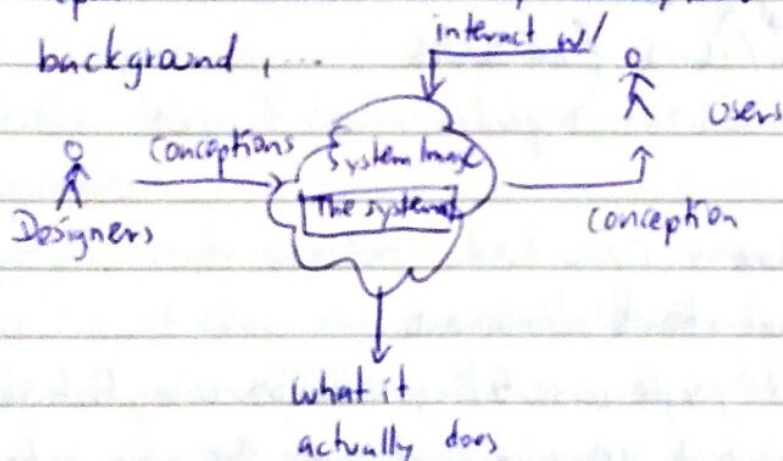 background, ...
interact w/
Users
Conceptions
System Image
The system
Designers
conception
What it
actually does